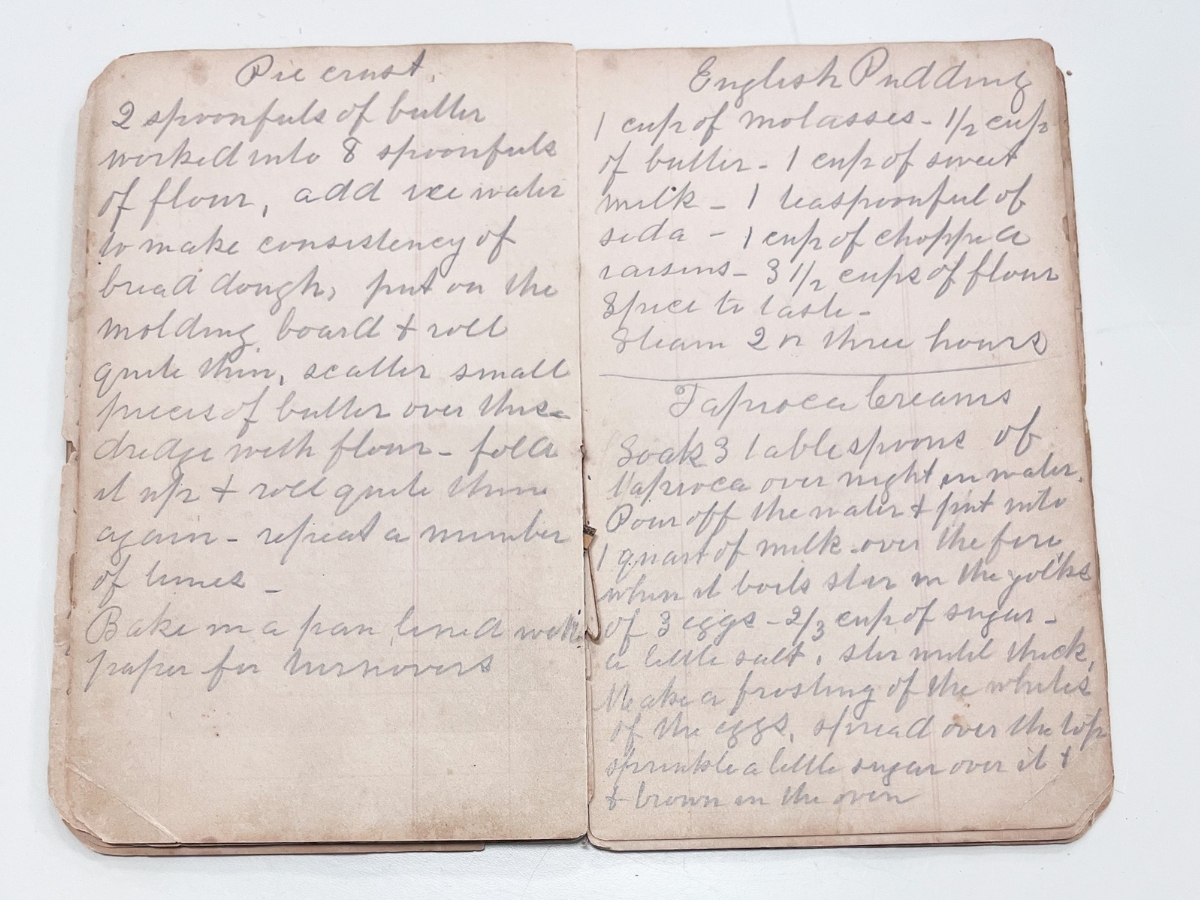 Pie crust.
2 spoonfuls of butter
worked into 8 spoonfuls
of flour, add ice water
to make consistency of
bread dough, put on the
molding board & roll
quite thin, scatter small
pieces of butter over this -
dredge with flour - fold
it up & roll quite thin
again - repeat a number
of times -
Bake in a pan lined with
paper for turnovers
English Pudding
1 cup of molasses - 1/2 cup
of butter - 1 cup of sweet
milk - 1 teaspoonful of
soda - 1 cup of chopped
raisins - 3 1/2 cups of flour
Spice to taste -
Steam 2 or three hours
Tapioca Creams
Soak 3 tablespoons of
tapioca over night in water.
Pour off the water & put into
1 quart of milk over the fire
when it boils stir in the yolks
of 3 eggs - 2/3 cup of sugar -
a little salt, stir until thick,
Make a frosting of the whites
of the eggs, spread over the top
sprinkle a little sugar over it &
& brown in the oven